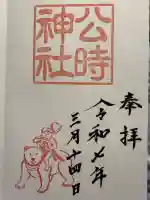 奉拝
公時神社
令和七年
三月十四日